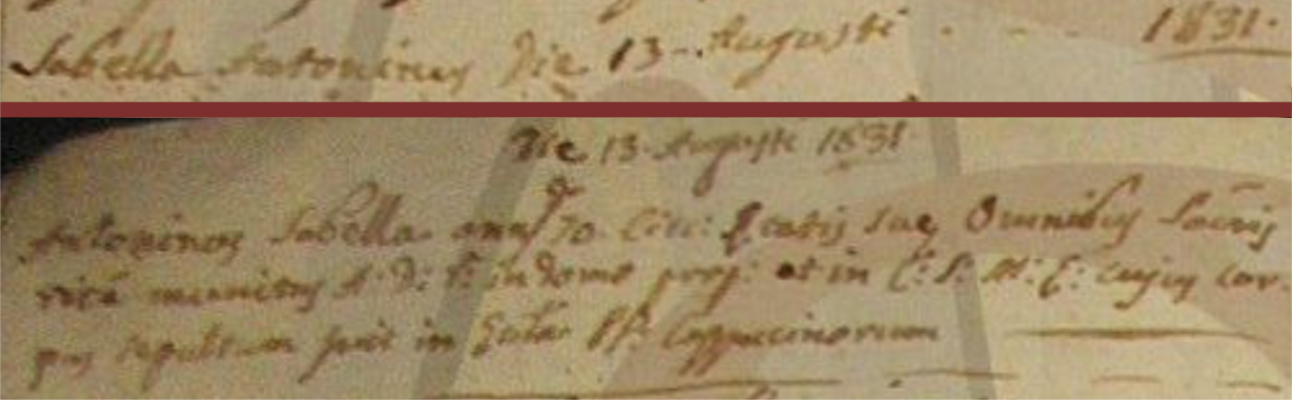 Sabella Antoninus Die 13 - Augusti . - . 1831.
Die 13 Augusti 1831
Antoninus Sabella ann: 70 Circ: Etatis suae Omnibus Sacris
rite munitus A: D: F: in domo prop: et in C: S: M: E: cujus cor-
pus sepultum fuit in Eccla PP: Cappuccinorum